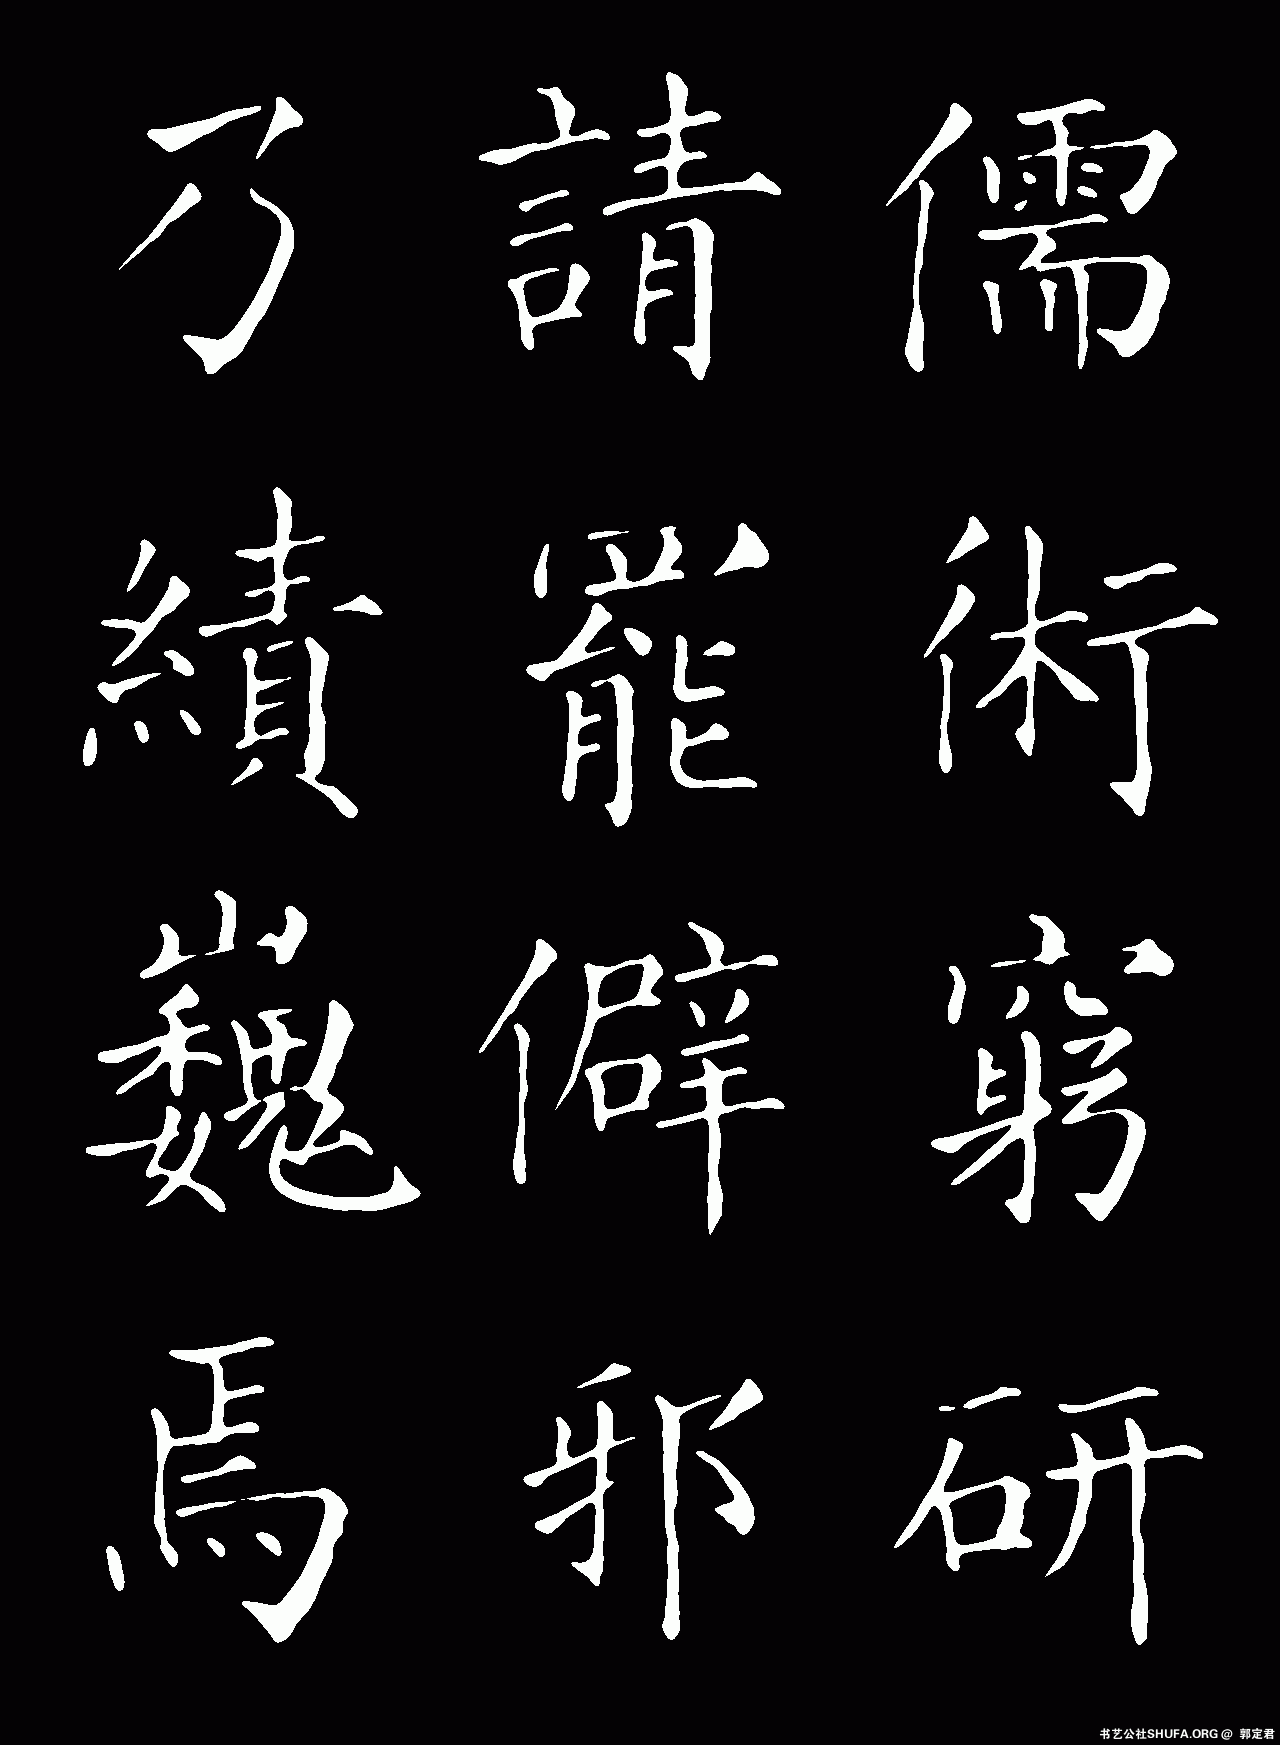 儒術窮研
請罷僻邪
乃績巍焉
书艺公社SHUFA.ORG @ 郭定君